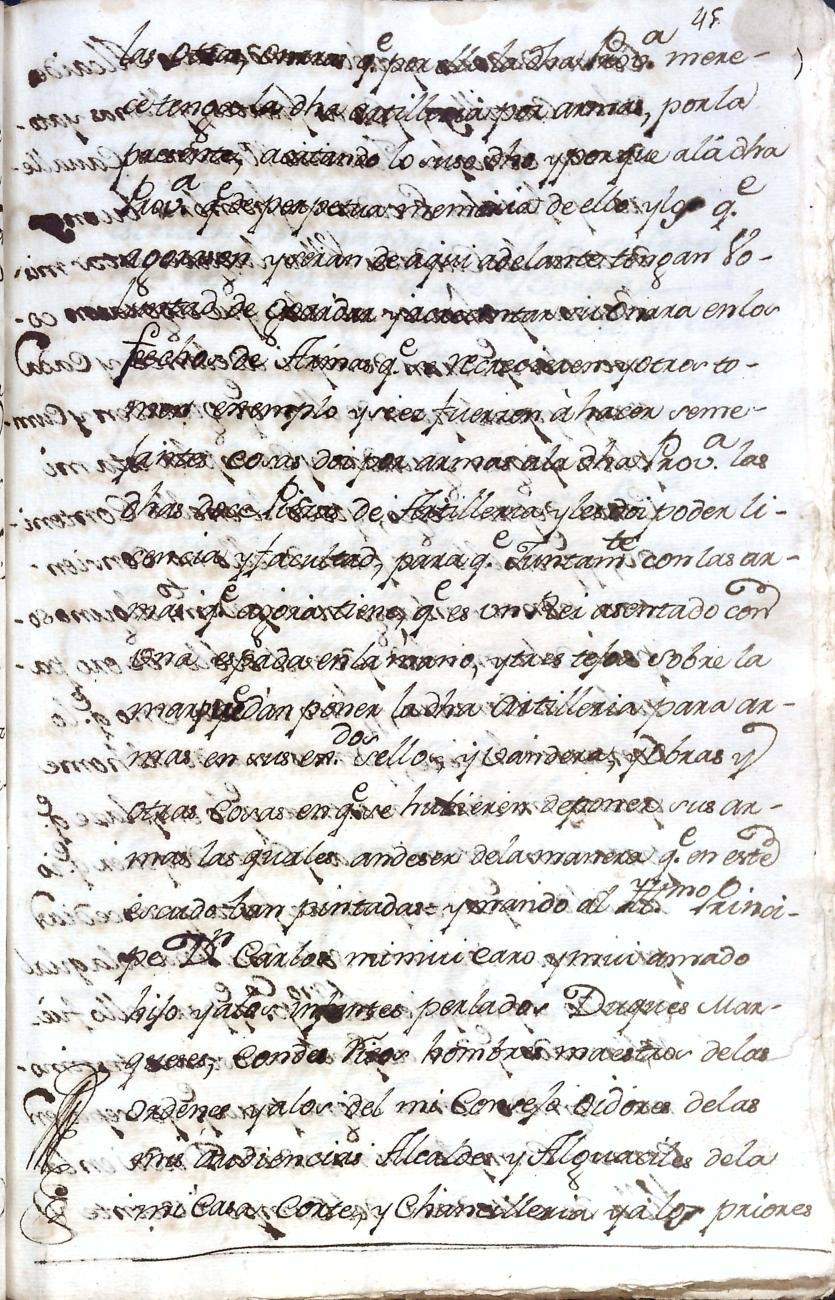 45
las otras, onrran q.e por ella la dha Prov.a mere-
ce tenga la dha artilleria por armas, por la
presente, acatando lo suso dho y por que a la dha
Prov.a q.e de perpetua memoria de ello y los q.e
agora son y seran de aqui adelante tengan Vo-
luntad de guardar y acrecentar su Onrra en los
fechos de Armas q.e se recrecieren y otros to-
men exemplo y se esfuerzen à hacer seme-
jantes cosas doi por armas a la dha Prov.a las
dhas doce Piezas de Artilleria y les doi poder li-
sencia y facultad, para q.e Juntam.te con las ar-
mas q.e agora tiene, q.e es un Rei asentado con
una espada en la mano, y tres tejos sobre la
mar puedan poner la dha Artilleria para ar-
mas en sus en.dos sellos, y vanderas, y Obras y
otras Cosas en q.e se hubieren de poner sus ar-
mas las quales an de ser de la manera q.e en este
escudo ban pintadas = y mando al Ill.mo Princi-
pe D.n Carlos mi mui caro y mui amado
hijo y a los infantes perlados Duques Mar-
queses, Condes Ricos hombres maestros de las
Ordenes y a los del mi Consejo Oidores de las
mis Audiencias Alcaldes y Alguaciles de la
mi Casa Corte, y Chancilleria y a los priores